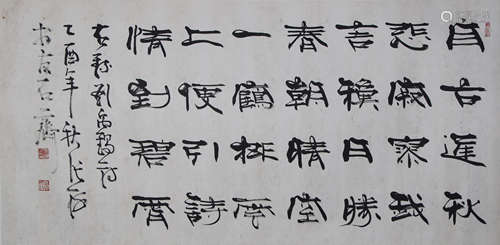 自古逢秋
悲寂寥我
言穐日勝
春朝晴空
一鶴排雲
上便引詩
情到碧霄
劉禹錫詩
乙酉年秋